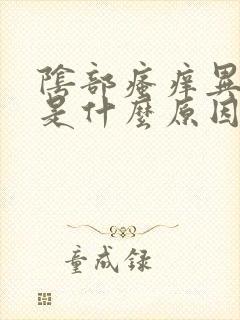 陰部瘙痒異
是什麼原因
童成録